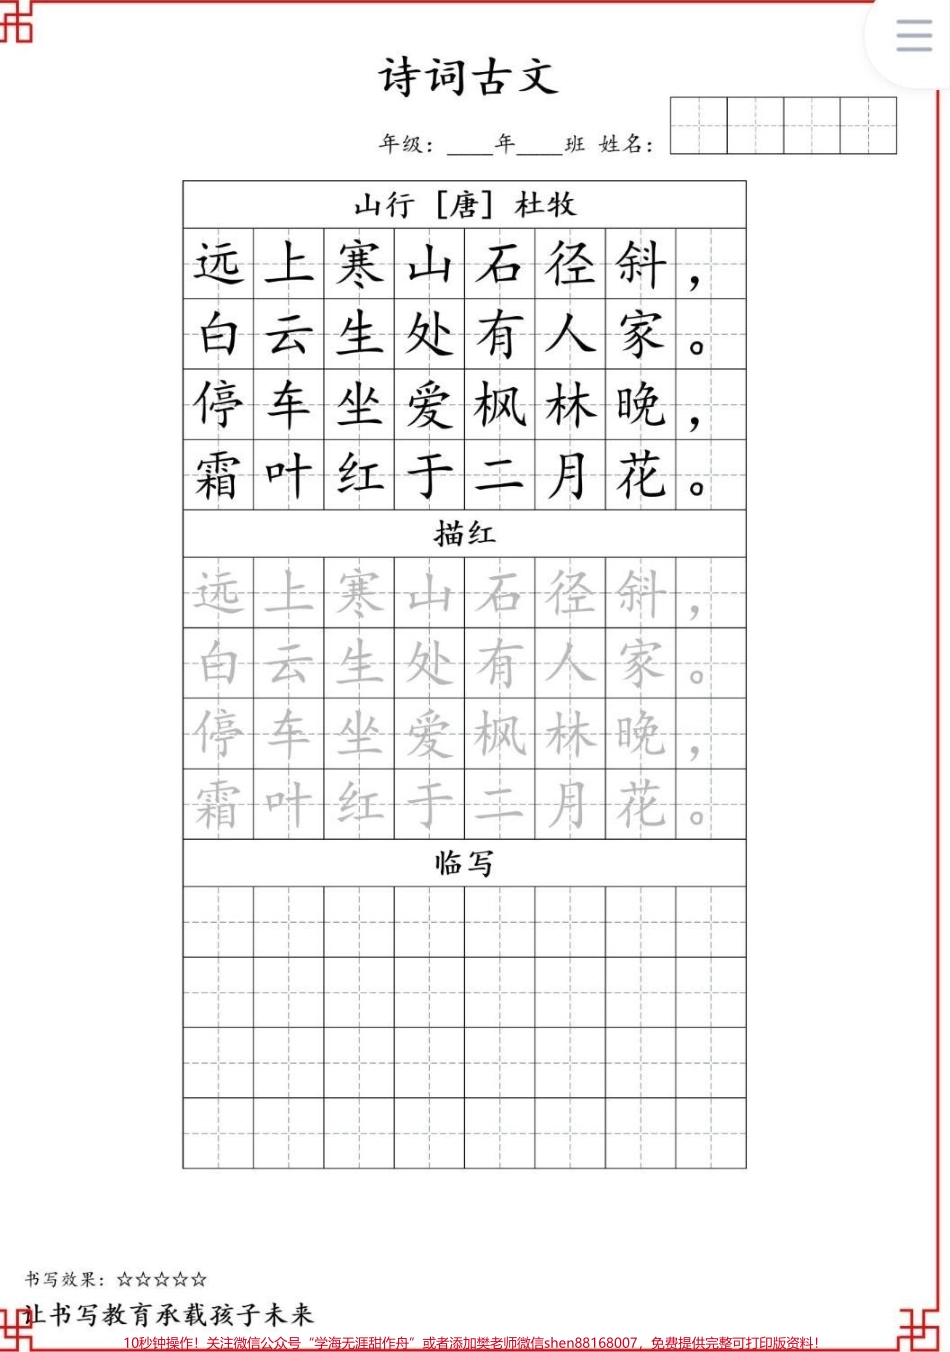 诗词古文
年级：____年____班 姓名：
山行［唐］杜牧
远上寒山石径斜，
白云生处有人家。
停车坐爱枫林晚，
霜叶红于二月花。
描红
远上寒山石径斜，
白云生处有人家。
停车坐爱枫林晚，
霜叶红于二月花。
临写
书写效果：☆☆☆☆☆
让书写教育承载孩子未来
10秒钟操作！关注微信公众号“学海无涯甜作舟”或者添加樊老师微信shen88168007，免费提供完整可打印版资料！